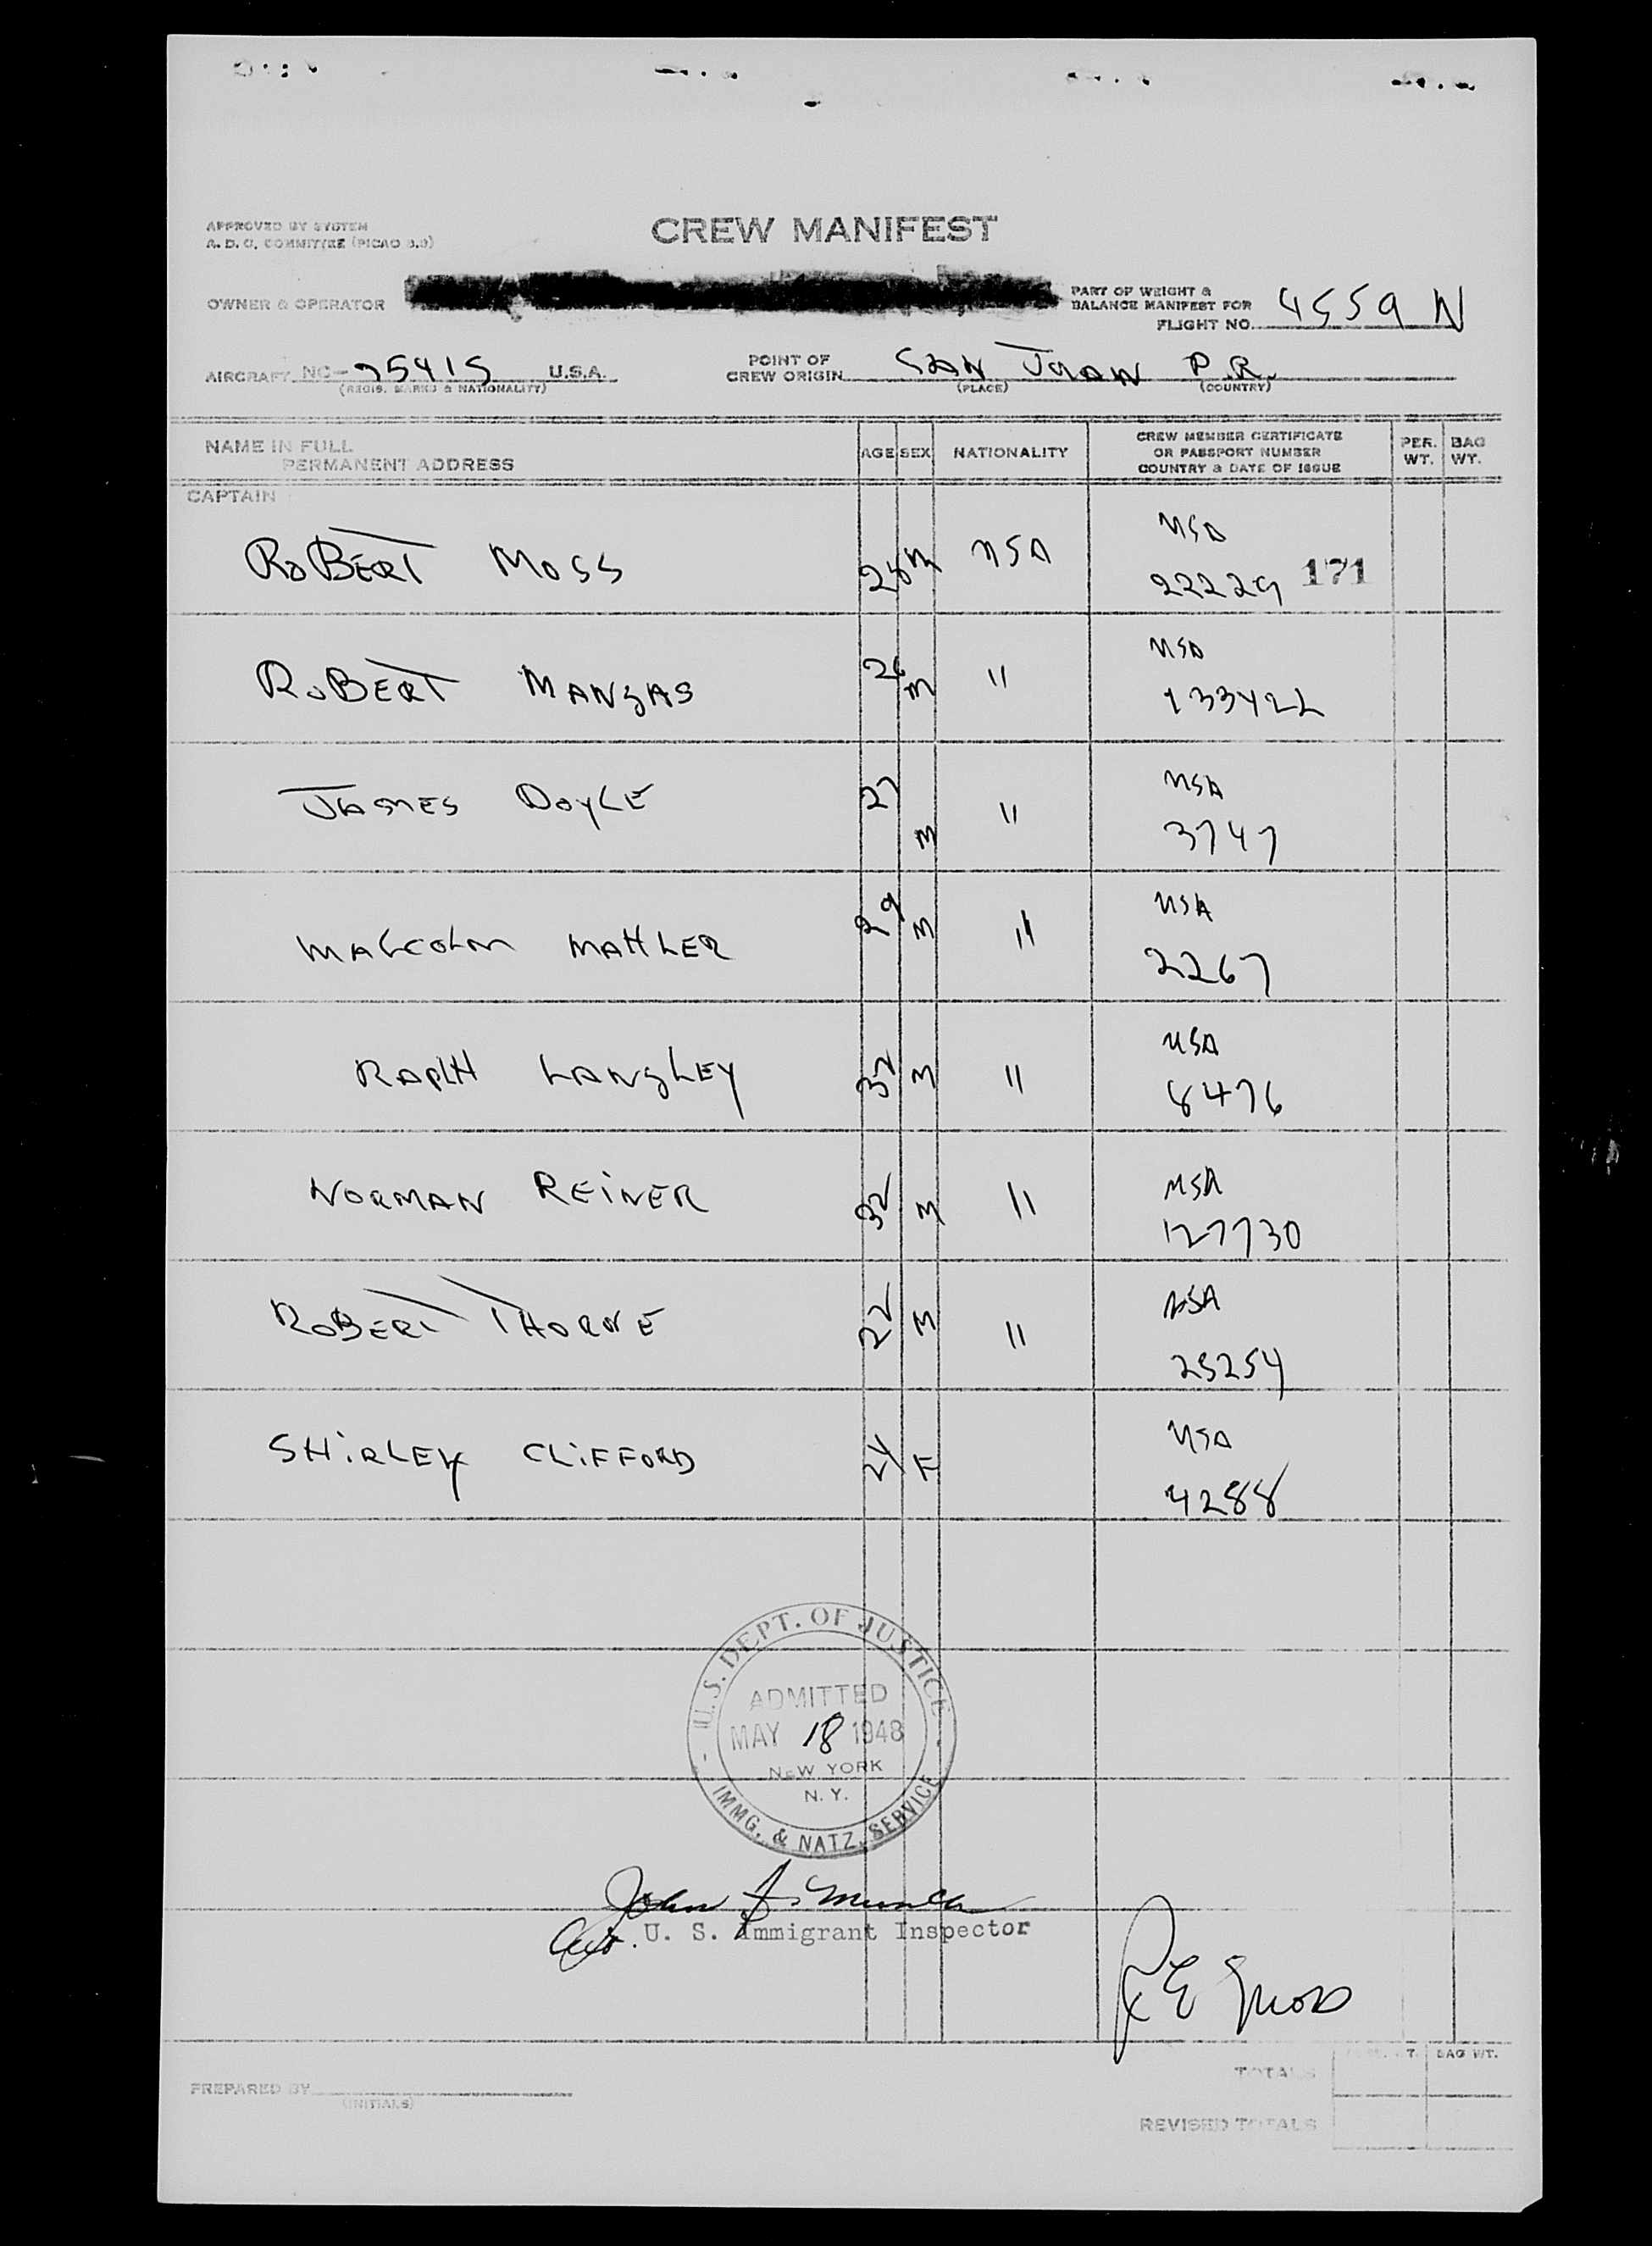 CREW MANIFEST
APPROVED BY SYSTEM
A. D. C. COMMITTEE (PICAO 3.3)
OWNER & OPERATOR
PART OF WEIGHT &
BALANCE MANIFEST FOR
FLIGHT NO. 4559 N
AIRCRAFT NC-75415 U.S.A.
(REGIS. MARKS & NATIONALITY)
POINT OF
CREW ORIGIN SAN JUAN P.R.
(PLACE) (COUNTRY)
NAME IN FULL
PERMANENT ADDRESS
AGE SEX NATIONALITY
CREW MEMBER CERTIFICATE
OR PASSPORT NUMBER
COUNTRY & DATE OF ISSUE
PER. WT. BAG WT.
CAPTAIN
ROBERT MOSS 28 M USA USA
22229 171
ROBERT MANGAS 26 M " USA
133422
JAMES DOYLE 27 M " USA
3747
MALCOLM MAHLER 29 M " USA
2267
RAPLH LANGLEY 32 M " USA
8476
NORMAN REINER 32 M " USA
127730
ROBERT THORNE 22 M " USA
25254
SHIRLEY CLIFFORD 24 F USA
4288
U.S. DEPT. OF JUSTICE
ADMITTED
MAY 18 1948
NEW YORK
N. Y.
IMMG. & NATZ. SERVICE
John J.
U. S. Immigrant Inspector
R E Moss
PREPARED BY
(INITIALS)
BAG WT.
TOTALS
REVISED TOTALS